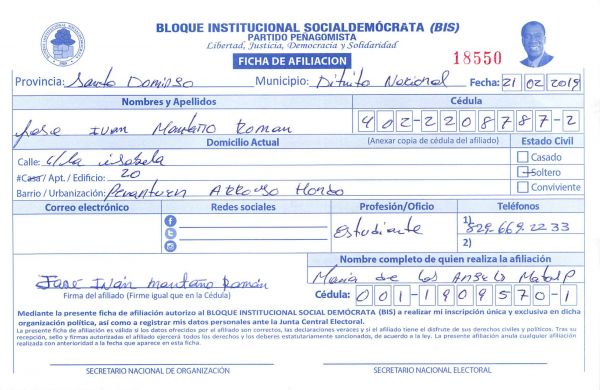 BLOQUE INSTITUCIONAL SOCIALDEMÓCRATA (BIS)
PARTIDO PEÑAGOMISTA
Libertad, Justicia, Democracia y Solidaridad
FICHA DE AFILIACION
18550
Provincia: Santo Domingo Municipio: Ditrito Nacional Fecha: 21 02 2019
Nombres y Apellidos Cédula
Jose Ivan Montaño Roman 402-2208787-2
Domicilio Actual (Anexar copia de cédula del afiliado) Estado Civil
Calle: c/la isabela Casado
#Casa / Apt. / Edificio: 20 Soltero
Barrio / Urbanización: Arroyo Hondo Conviviente
Correo electrónico Redes sociales Profesión/Oficio Teléfonos
Estudiante 1) 829.669.2233
2)
Nombre completo de quien realiza la afiliación
Jose Iván montaño Román Maria de los Angeles
Firma del afiliado (Firme igual que en la Cédula) Cédula: 001-1909570-1
Mediante la presente ficha de afiliación autorizo al BLOQUE INSTITUCIONAL SOCIAL DEMÓCRATA (BIS) a realizar mi inscripción única y exclusiva en dicha
organización política, así como a registrar mis datos personales ante la Junta Central Electoral.
La presente ficha de afiliación es válida si los datos ofrecidos por el afiliado son correctos, las declaraciones veraces y si el afiliado tiene el disfrute de sus derechos civiles y políticos. Tras su
recepción, sello y firmas autorizadas el afiliado ejercerá todos los derechos y los deberes estatutariamente sancionados, de acuerdo a la ley. La presente afiliación anula cualquier afiliación
realizada con anterioridad a la fecha que aparece en esta ficha.
SECRETARIO NACIONAL DE ORGANIZACIÓN SECRETARIO NACIONAL ELECTORAL